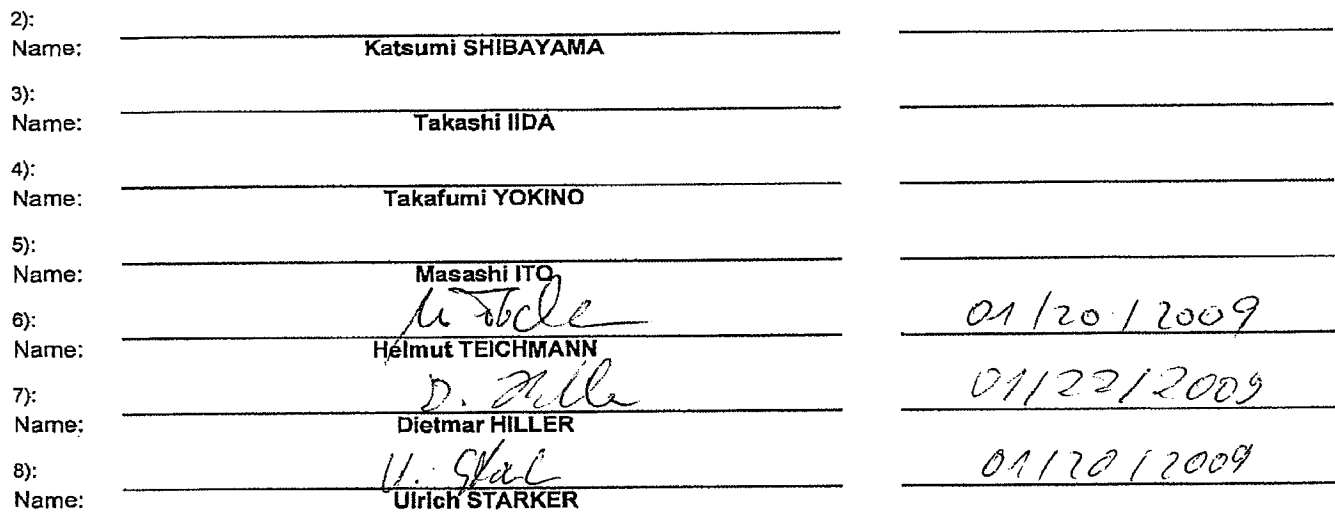 2):
Name: Katsumi SHIBAYAMA
3):
Name: Takashi IIDA
4):
Name: Takafumi YOKINO
5):
Name: Masashi ITO
6): 01/20/2009
Name: Helmut TEICHMANN
7): D. Hiller 01/22/2009
Name: Dietmar HILLER
8): 01/20/2009
Name: Ulrich STARKER